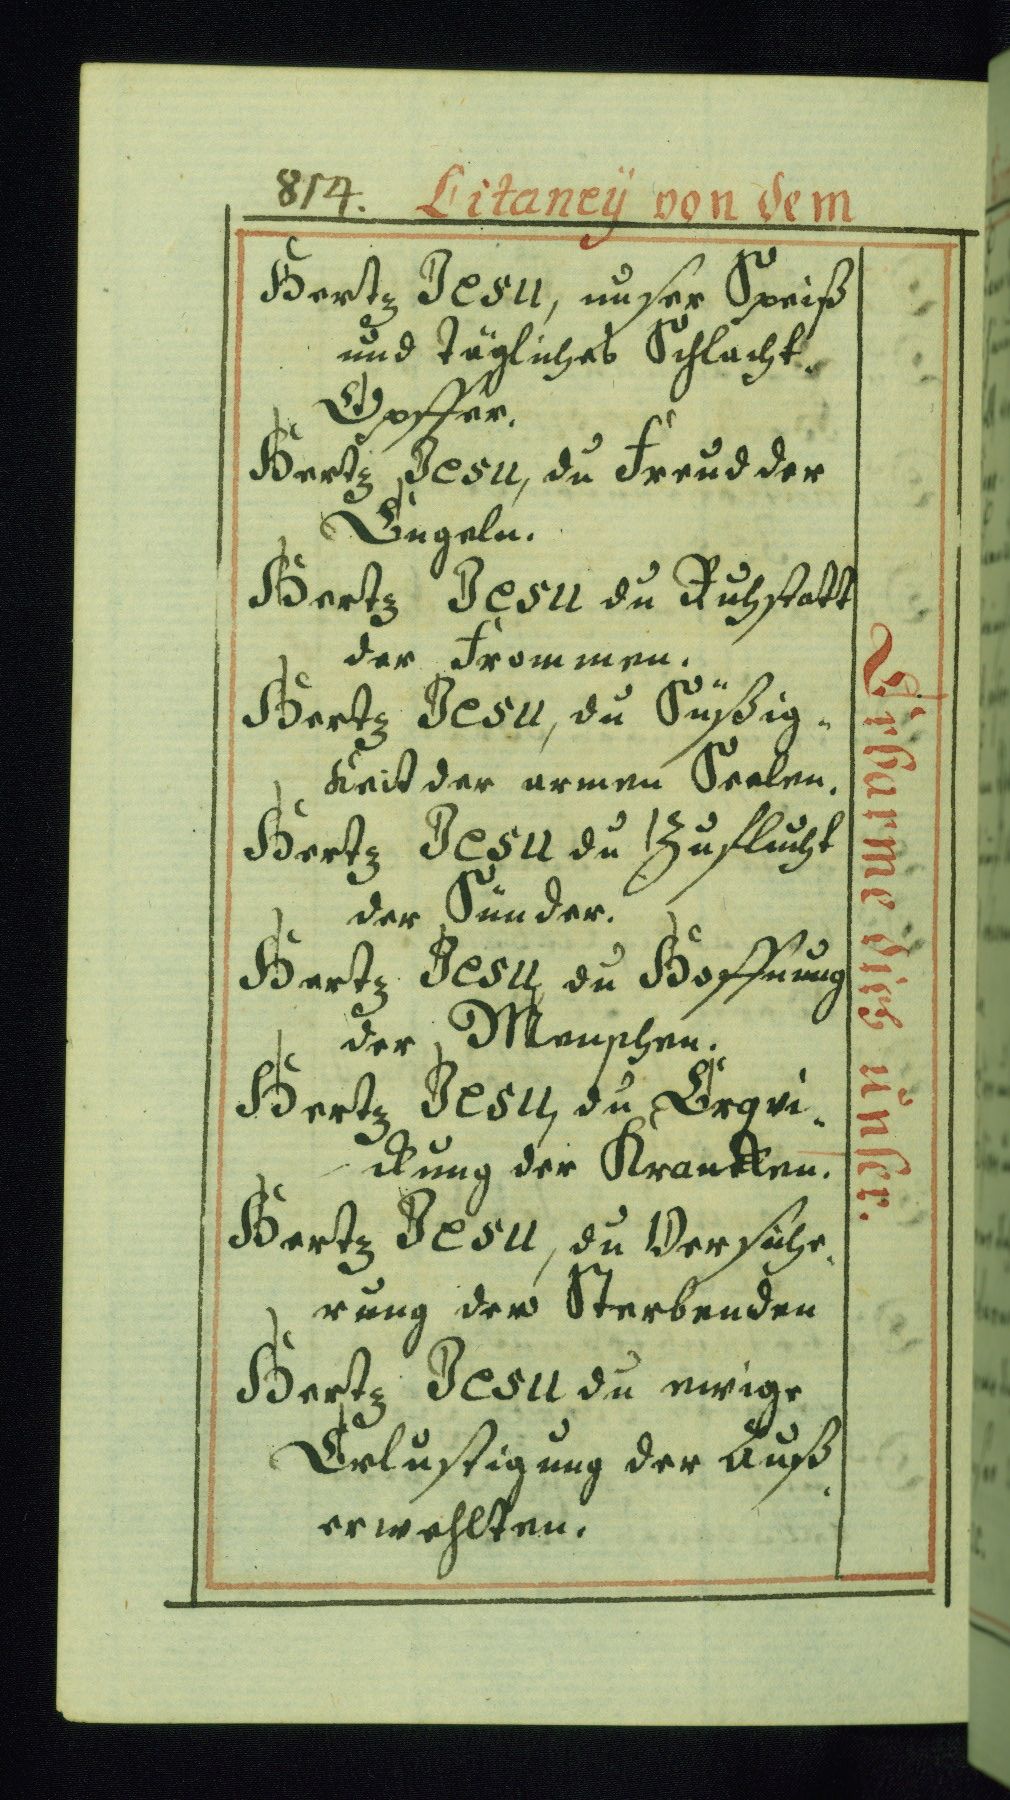 814. Litaneÿ von dem
Hertz Jesu, unser Speiß
und tägliches Schlacht-
Opffer.
Hertz Jesu, du Freud der
Engeln.
Hertz Jesu du Ruhstatt
der Frommen.
Hertz Jesu, du Süßig-
keit der armen Seelen.
Hertz Jesu du Zuflucht
der Sünder.
Hertz Jesu, du Hoffnung
der Menschen.
Hertz Jesu, du Erqvi-
ckung der Krancken.
Hertz Jesu, du Versiche-
rung der Sterbenden
Hertz Jesu du ewige
Erlustigung der Auß-
erwehlten.
Erbarme dich unser.